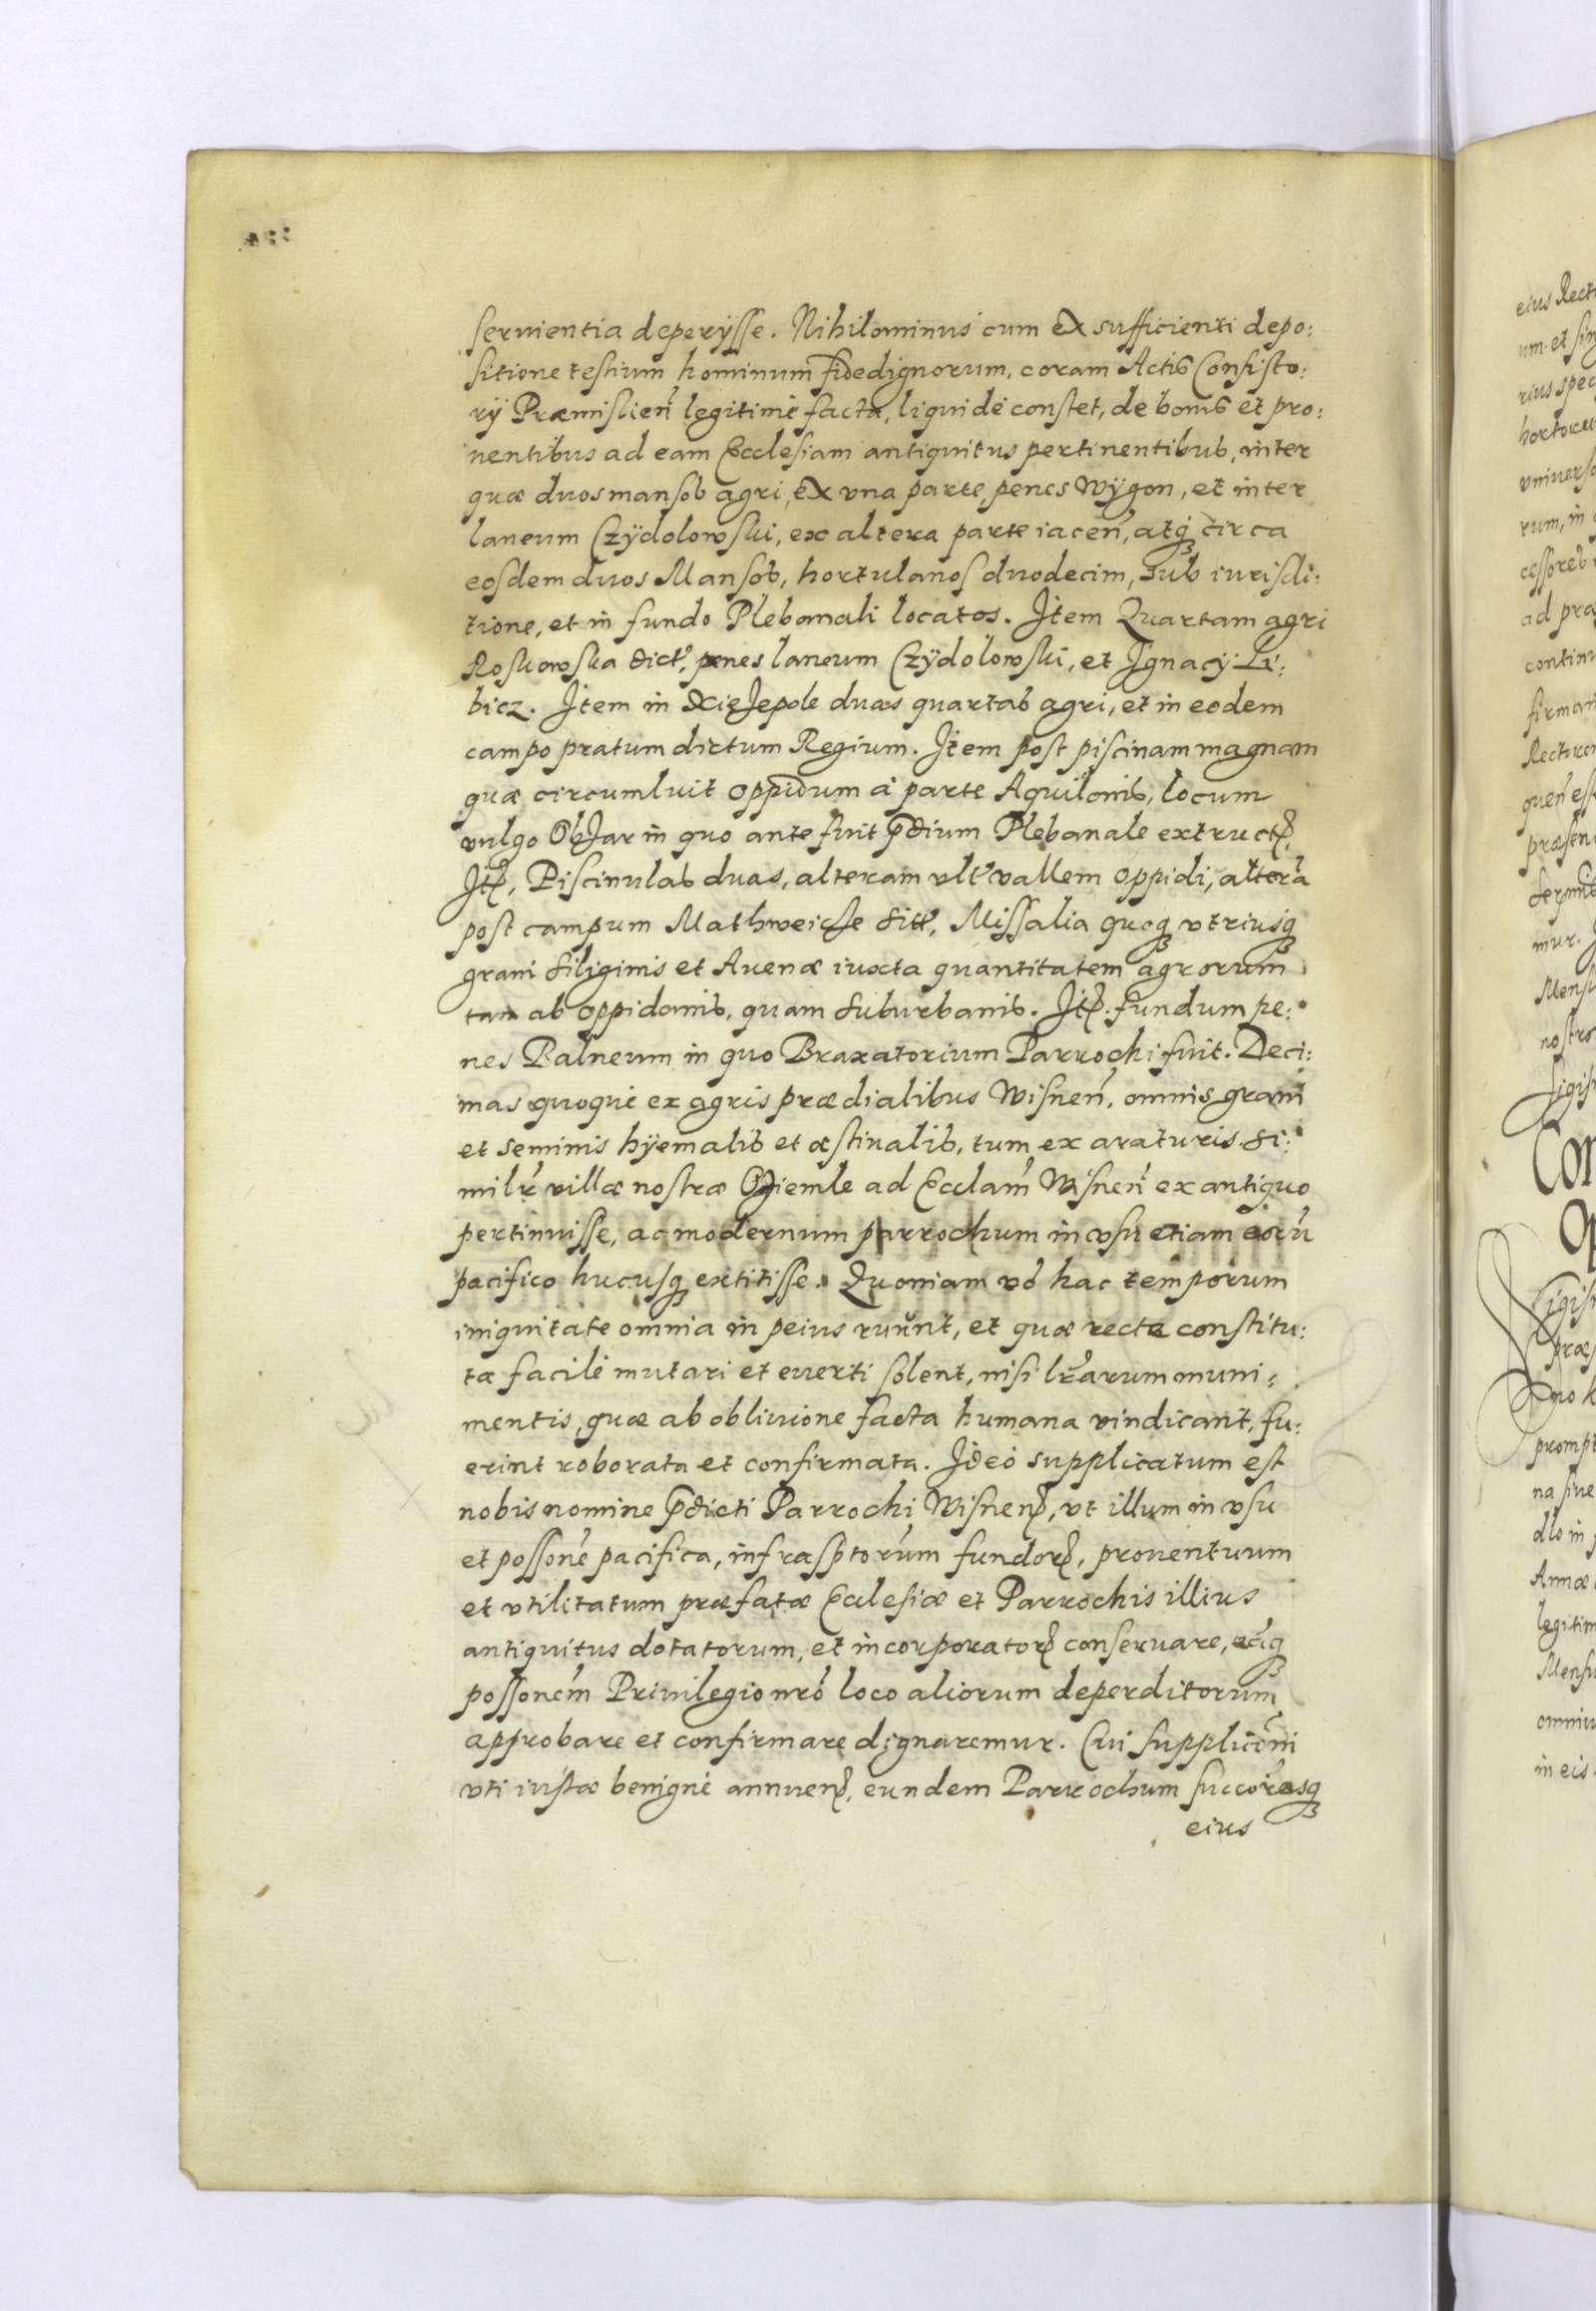 seruientia deperÿsse. Nihilominus cum ex sufficienti depo:
sitione testium hominum fidedignorum, coram Actis Consisto:
rÿ Præmislien̄ legitimè facta, liquidè constet, de bonis et pro:
uentibus ad eam Ecclesiam antiquitus pertinentibus, inter
quæ duos mansos agri, ex vna parte, penes Wÿgon, et inter
laneum Czÿdolowski, ex altera parte iacen̄, atq́ circa
eosdem duos Mansos, hortulanos duodecim, sub iurisdi:
tione, et in fundo Plebanali locatos. Item Quartam agri
Roskowska dict', penes laneum Czÿdolowski, et Ignacÿ Li:
bicz. Item in Xiężepole duas quartas agri, et in eodem
campo pratum dictum Regium. Item post piscinam magnam
quæ circumluit oppidum à parte Aquilonis, locum
vulgo Obżar in quo ante fuit p̄dium Plebanale extructꝭ.
Itꝭ, Piscinulas duas, alteram vlt' vallem oppidi, alterā
post campum Mathweicze sitt', Missalia quoq́ vtriusq́
grani siliginis et Auenæ iuxta quantitatem agrorum
tam ab oppidanis, quam suburbanis. Itꝭ. fundum pe:
nes Balneum in quo Braxatorium Parrochi fuit. Deci:
mas quoque ex agris prædialibus Wisnen̄. omnis grani
et seminis hÿemalis et æstiualis, tum ex araturis si:
milr̄ villæ nostræ Oziemle ad Ecclam̄ Wisnen̄ ex antiquo
pertinuisse, ac modernum parrochum in vsu etiam eorū
pacifico hucusq́ extitisse. Quoniam vō hac temporum
iniquitate omnia in peius ruunt, et quæ recte constitu:
ta facilè mutari et euerti solent, nisi lr̄arum muni:
mentis, quæ ab obliuione facta humana vindicant, fu:
erint roborata et confirmata. Ideò supplicatum est
nobis nomine p̄dicti Parrochi Wisnenꝭ, vt illum in vsu
et possone̅ pacifica, infrasp̄torum fundorꝭ, prouentuum
et vtilitatum præfatæ Ecclesiæ et Parrochis illius
antiquitus dotatorum, et incorporatorꝭ conseruare, eāq́
possonem̄ Priuilegio nr̄o loco aliorum deperditorum
approbare et confirmare dignaremur. Cui supplicōni
vti iustæ benignè annuenꝭ, eundem Parrochum succōresq́
eius